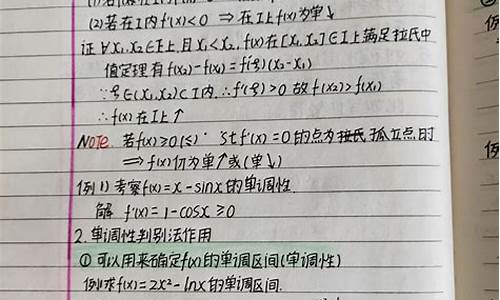 (2)若在I内f'(x)<0 ⇒在I上f(x)为单↓
证 ∀x₁,x₂∈I上,且x₁<x₂, f(x)在[x₁,x₂]∈I上满足拉氏中
值定理有f(x₂)-f(x₁)=f'(ξ)(x₂-x₁)
∵ξ∈(x₁,x₂)⊂I内.∴f'(ξ)>0 故f(x₂)>f(x₁)
∴f(x)在I上↑
NOTE. 若f(x)≥0(≤)· st f'(x)=0的点为孤立点时
⇒f(x)仍为单↑或(单↓)
例1)考察f(x)=x-sinx的单调性.
解 f'(x)=1-cosx≥0
2.单调性判别法作用
①可以用来确定f(x)的单调区间(单调性)
例1求f(x)=2x²-lnx的单调区间.
例
例